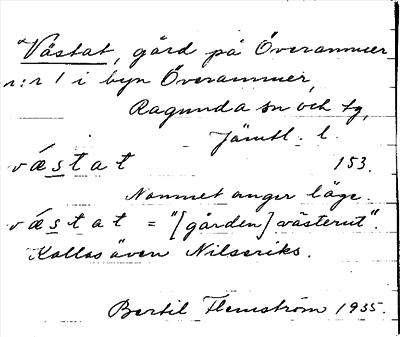 Västat, gård på Överammer
n:r 1 i byn Överammer,
Ragunda sn och tg,
Jämtl. l.
vǽstat 153.
Namnet anger läge.
vǽstat = "[gården] västerut".
Kallas även Nilseriks.
Bertil Flemström 1935.